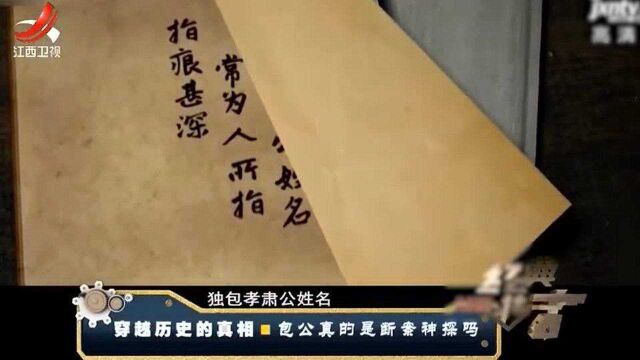 江西卫视
jxntv
高清
公姓名
常为人所指
指痕甚深
独包孝肃公姓名
经典传奇者
穿越历史的真相■包公真的是断案神探吗